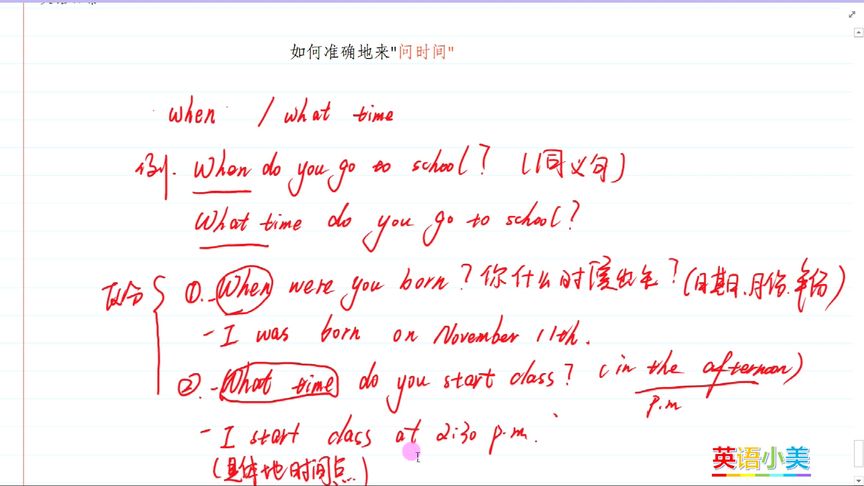 如何准确地来"问时间"
when / what time
例. When do you go to school? (同义句)
What time do you go to school?
区分 ①. -When were you born? 你什么时候出生? (日期.月份.年份)
- I was born on November 11th.
②. -What time do you start class? (in the afternoon)
p.m
- I start class at 2:30 p.m.
(具体地时间点)
英语小美